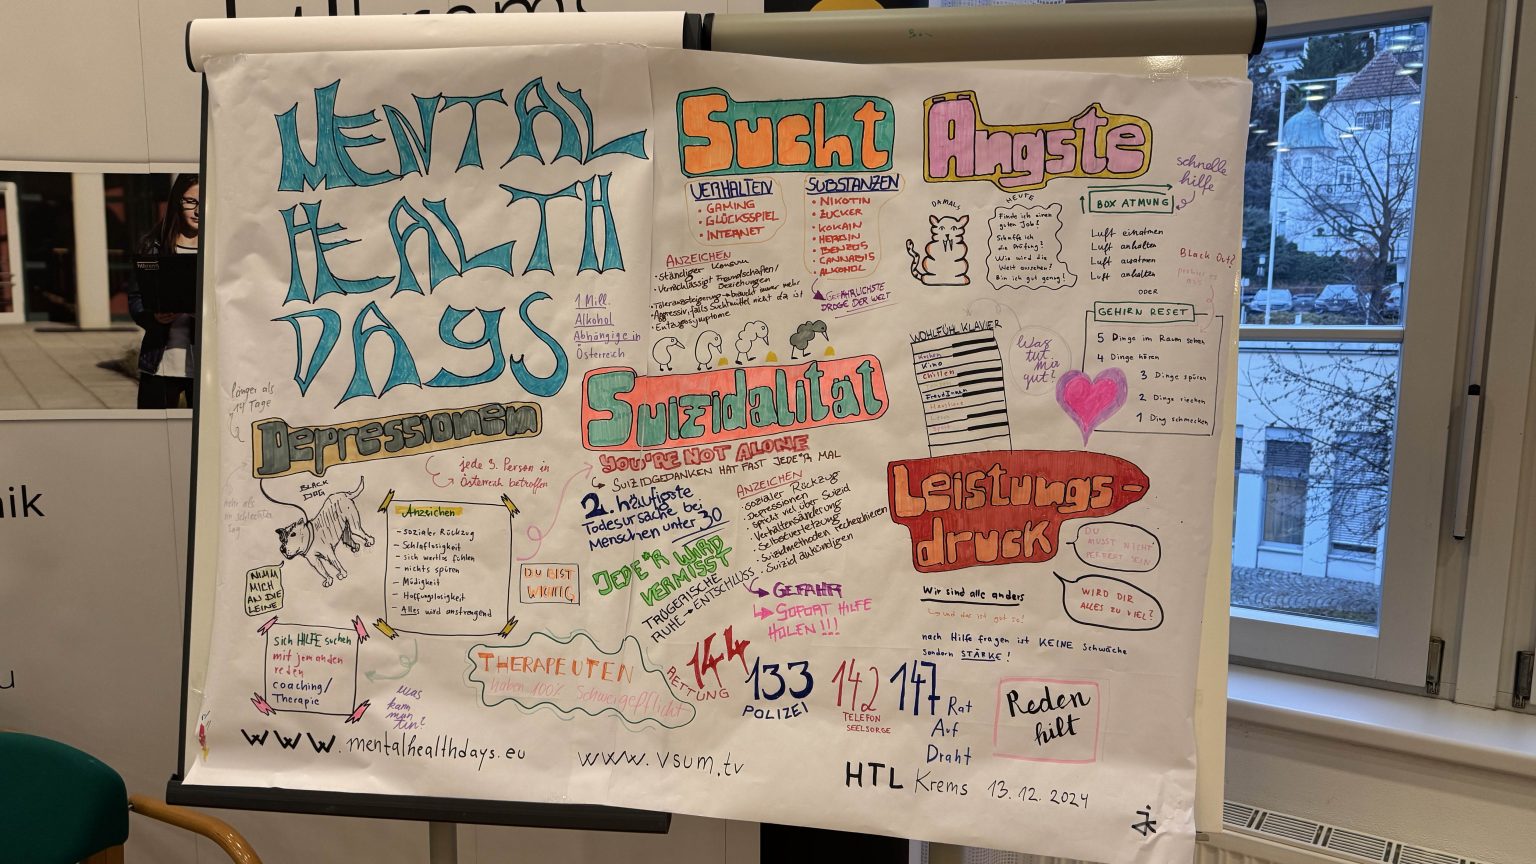 MENTAL
HEALTH
DAYS
1 Mill.
Alkohol
Abhängige in
Österreich
Sucht
VERHALTEN
• GAMING
• GLÜCKSSPIEL
• INTERNET
SUBSTANZEN
• NIKOTIN
• ZUCKER
• KOKAIN
• HEROIN
• BENZOS
• CANNABIS
• ALKOHOL
GEFÄHRLICHSTE
DROGE DER WELT
ANZEICHEN
• Ständiger Konsum
• Vernachlässigt Freundschaften/
Beziehungen
• Toleranzsteigerung → braucht immer mehr
• Aggressiv, falls Suchtmittel nicht da ist
• Entzugssymptome
Ängste
schnelle
hilfe
DAMALS
HEUTE
Finde ich einen
guten Job?
Schaffe ich
die Prüfung?
Wie wird die
Welt aussehen?
Bin ich gut genug?
BOX ATMUNG
Luft einatmen
Luft anhalten
Luft ausatmen
Luft anhalten
ODER
Black Out?
probier es
aus
GEHIRN RESET
5 Dinge im Raum sehen
4 Dinge hören
3 Dinge spüren
2 Dinge riechen
1 Ding schmecken
WOHLFÜHL KLAVIER
Kochen
Kino
Chillen
Freund:innen
Haustiere
Was
tut
mir
gut?
länger als
14 Tage
Depressionen
jede 5. Person in
Österreich betroffen
mehr als
ein schlechter
Tag
BLACK
DOG
NIMM
MICH
AN DIE
LEINE
Anzeichen
- sozialer Rückzug
- Schlaflosigkeit
- sich wertlos fühlen
- nichts spüren
- Müdigkeit
- Hoffnungslosigkeit
- Alles wird anstrengend
DU BIST
WICHTIG
sich HILFE suchen
mit jemanden
reden
coaching/
Therapie
was
kann
man
tun?
Suizidalität
YOU'RE NOT ALONE
SUIZIDGEDANKEN HAT FAST JEDE*R MAL
2. häufigste
Todesursache bei
Menschen unter 30
JEDE*R WIRD
VERMISST
TRÜGERISCHE
RUHE → ENTSCHLUSS
ANZEICHEN
• sozialer Rückzug
• Depressionen
• spricht viel über Suizid
• Verhaltensänderung
• Selbstverletzung
• Suizidmethoden recherchieren
• Suizid ankündigen
GEFAHR
SOFORT HILFE
HOLEN!!!
Leistungs-
druck
DU
MUSST NICHT
PERFEKT SEIN
WIRD DIR
ALLES ZU VIEL?
Wir sind alle anders
und das ist gut so!
nach Hilfe fragen ist KEINE Schwäche
sondern STÄRKE!
THERAPEUTEN
haben 100% Schweigepflicht
144
RETTUNG
133
POLIZEI
142
TELEFON
SEELSORGE
147
Rat
Auf
Draht
Reden
hilft
www.mentalhealthdays.eu
www.vsum.tv
HTL Krems 13.12.2024
nik